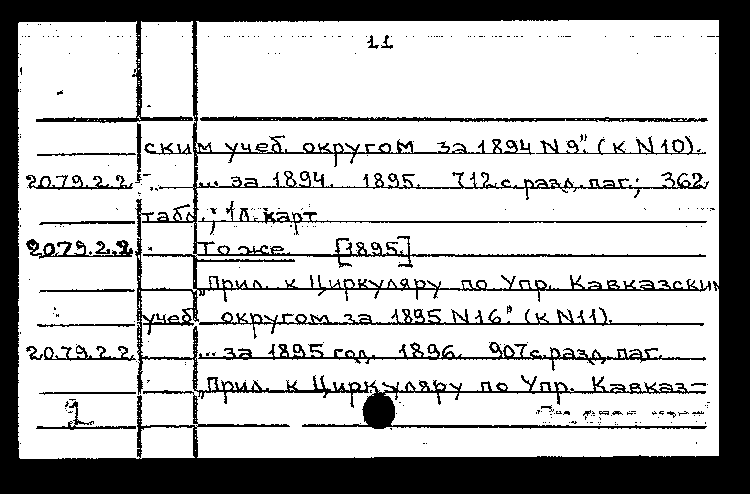 11
ским учеб. округом за 1894 N 9." (к N 10).
20.79.2.2. ... за 1894. 1895. 712 с. разд. паг.; 362
табл.; 1 л. карт
20.79.2.2. То же. [1895.]
„Прил. к Циркуляру по Упр. Кавказским
учеб. округом за 1895 N 16." (к N 11).
20.79.2.2. ... за 1895 год. 1896. 907 с. разд. паг.
„Прил. к Циркуляру по Упр. Кавказ=
2